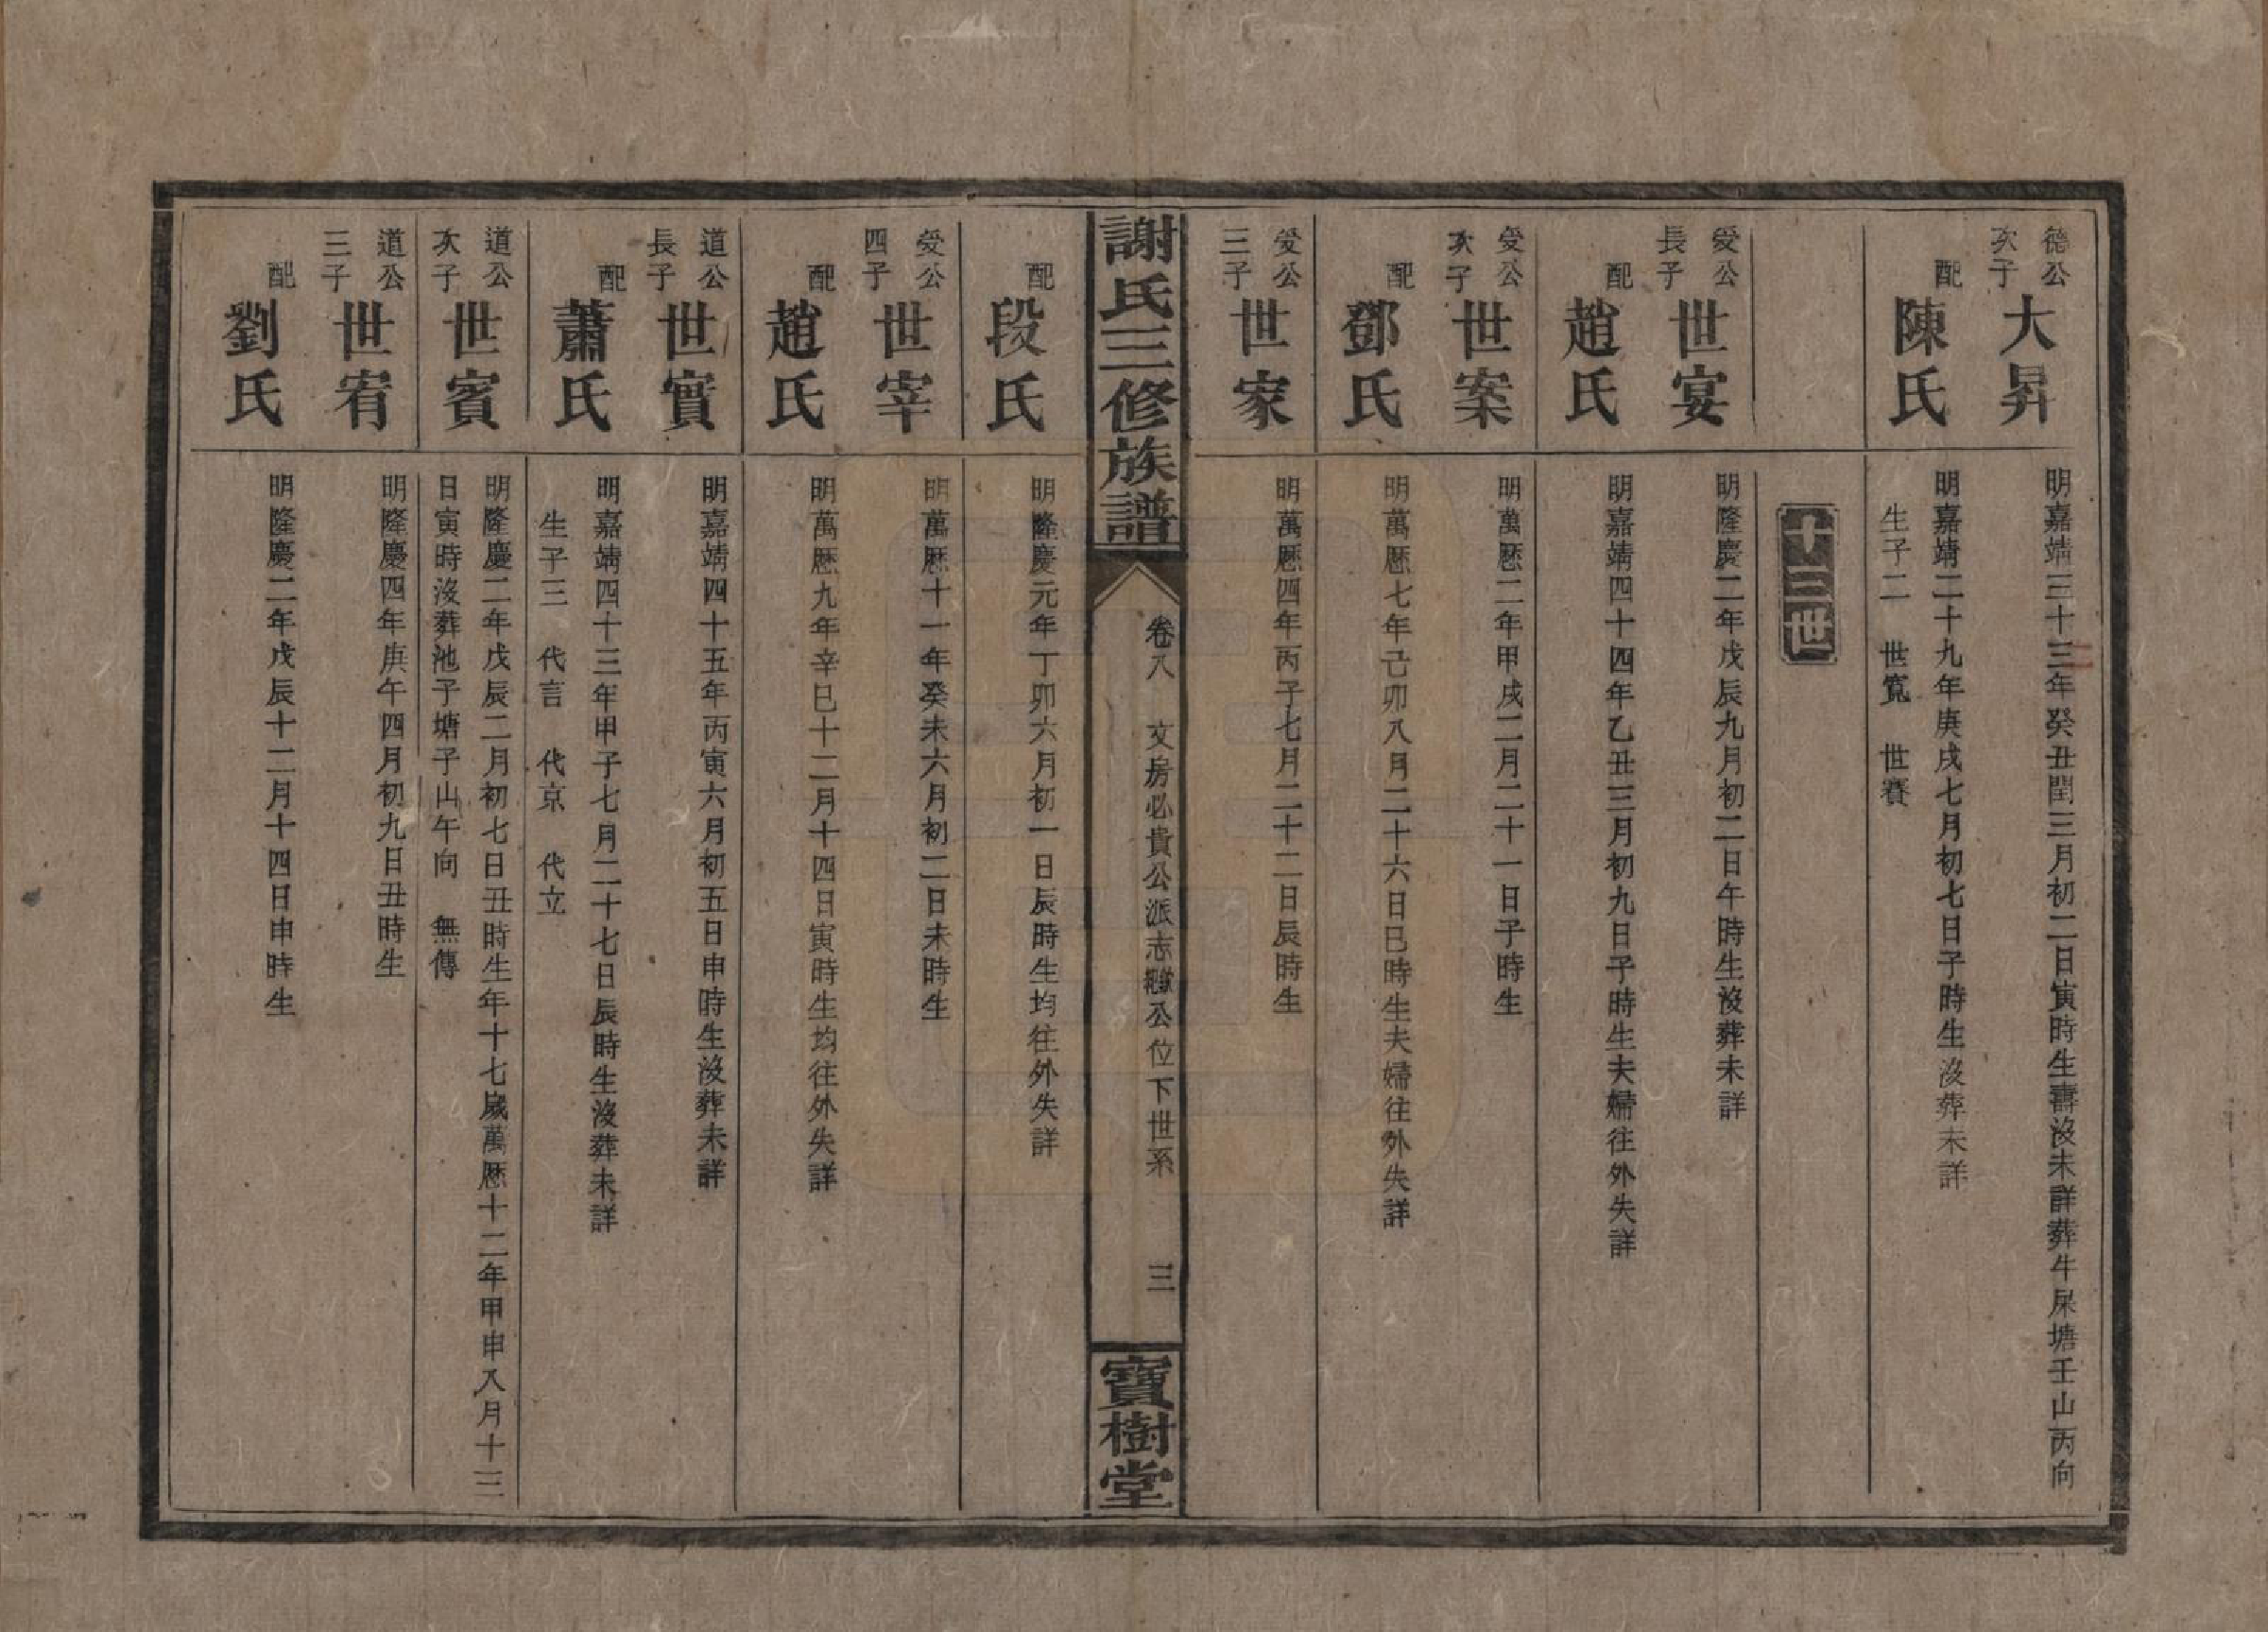 德公
次子
大昇
明嘉靖三十三年癸丑閏三月初二日寅時生壽沒未詳葬牛屎塘壬山丙向
二
配
陳氏
明嘉靖二十九年庚戌七月初七日子時生沒葬未詳
生子二　世寬　世賽
十三世
受公
長子
世宴
明隆慶二年戊辰九月初二日午時生沒葬未詳
配
趙氏
明嘉靖四十四年乙丑三月初九日子時生夫婦往外失詳
受公
次子
世案
明萬歷二年甲戌二月二十一日子時生
配
鄧氏
明萬歷七年己卯八月二十六日巳時生夫婦往外失詳
受公
三子
世家
明萬歷四年丙子七月二十二日辰時生
謝氏三修族譜
卷八　文房必貴公派志公位下世系　三
寶樹堂
配
段氏
明隆慶元年丁卯六月初一日辰時生均往外失詳
受公
四子
世宰
明萬歷十一年癸未六月初二日未時生
配
趙氏
明萬歷九年辛巳十二月十四日寅時生均往外失詳
道公
長子
世實
明嘉靖四十五年丙寅六月初五日申時生沒葬未詳
配
蕭氏
明嘉靖四十三年甲子七月二十七日辰時生沒葬未詳
生子三　代言　代京　代立
道公
次子
世賓
明隆慶二年戊辰二月初七日丑時生年十七歲萬歷十二年甲申八月十三
日寅時沒葬池子塘子山午向　無傳
道公
三子
世宥
明隆慶四年庚午四月初九日丑時生
配
劉氏
明隆慶二年戊辰十二月十四日申時生